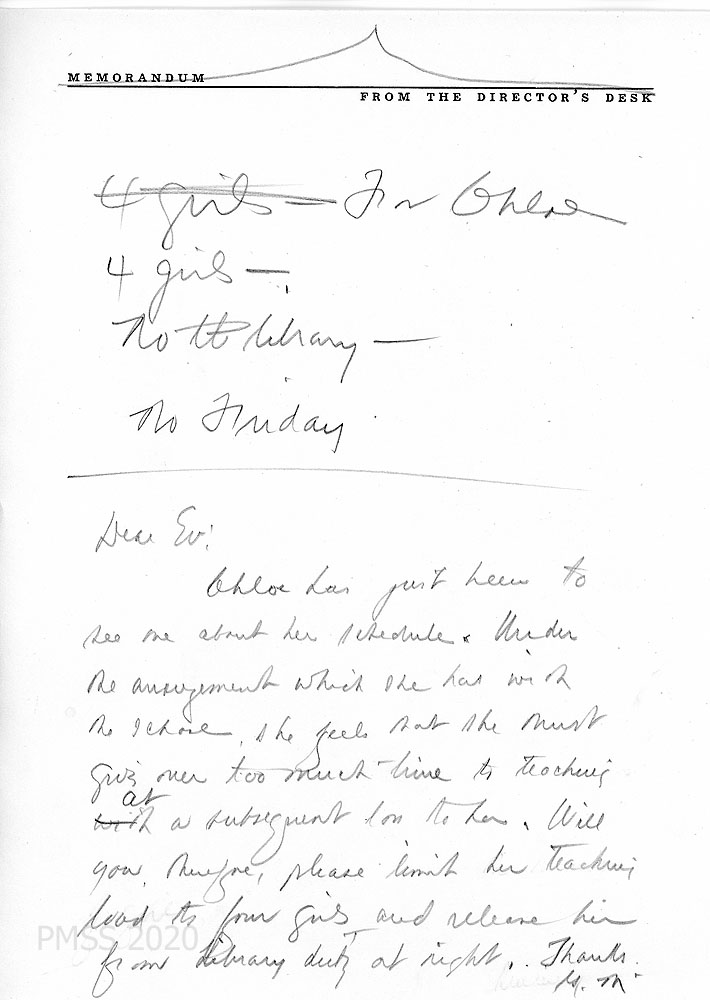 MEMORANDUM
FROM THE DIRECTOR'S DESK
4 girls — For Chloe
4 girls —
No library —
No Friday
Dear Ev:
Chloe has just been to
see me about her schedule. Under
the arrangement which she has with
the school, she feels that she must
give over too much time to teaching
at
with a subsequent loss to her. Will
you, therefore, please limit her teaching
load to four girls and release her
from library duty at night. Thanks.
PMSS 2020